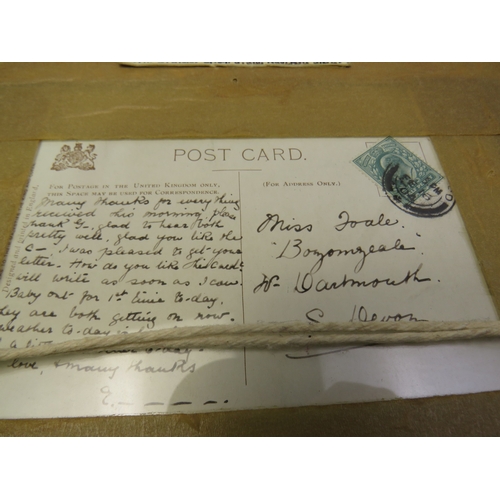 POST CARD.
FOR POSTAGE IN THE UNITED KINGDOM ONLY,
THIS SPACE MAY BE USED FOR CORRESPONDENCE.
(FOR ADDRESS ONLY.)
Many thanks for everything
received this morning, please
thank G. glad to hear both
pretty well, glad you like the
C—. I was pleased to get your
letter. How do you like this card?
will write as soon as I can.
Baby out for 1st time to-day.
They are both getting on now.
weather to-day
love, & many thanks
Miss Foale.
"Bozomzeale"
Nr Dartmouth.
S. Devon